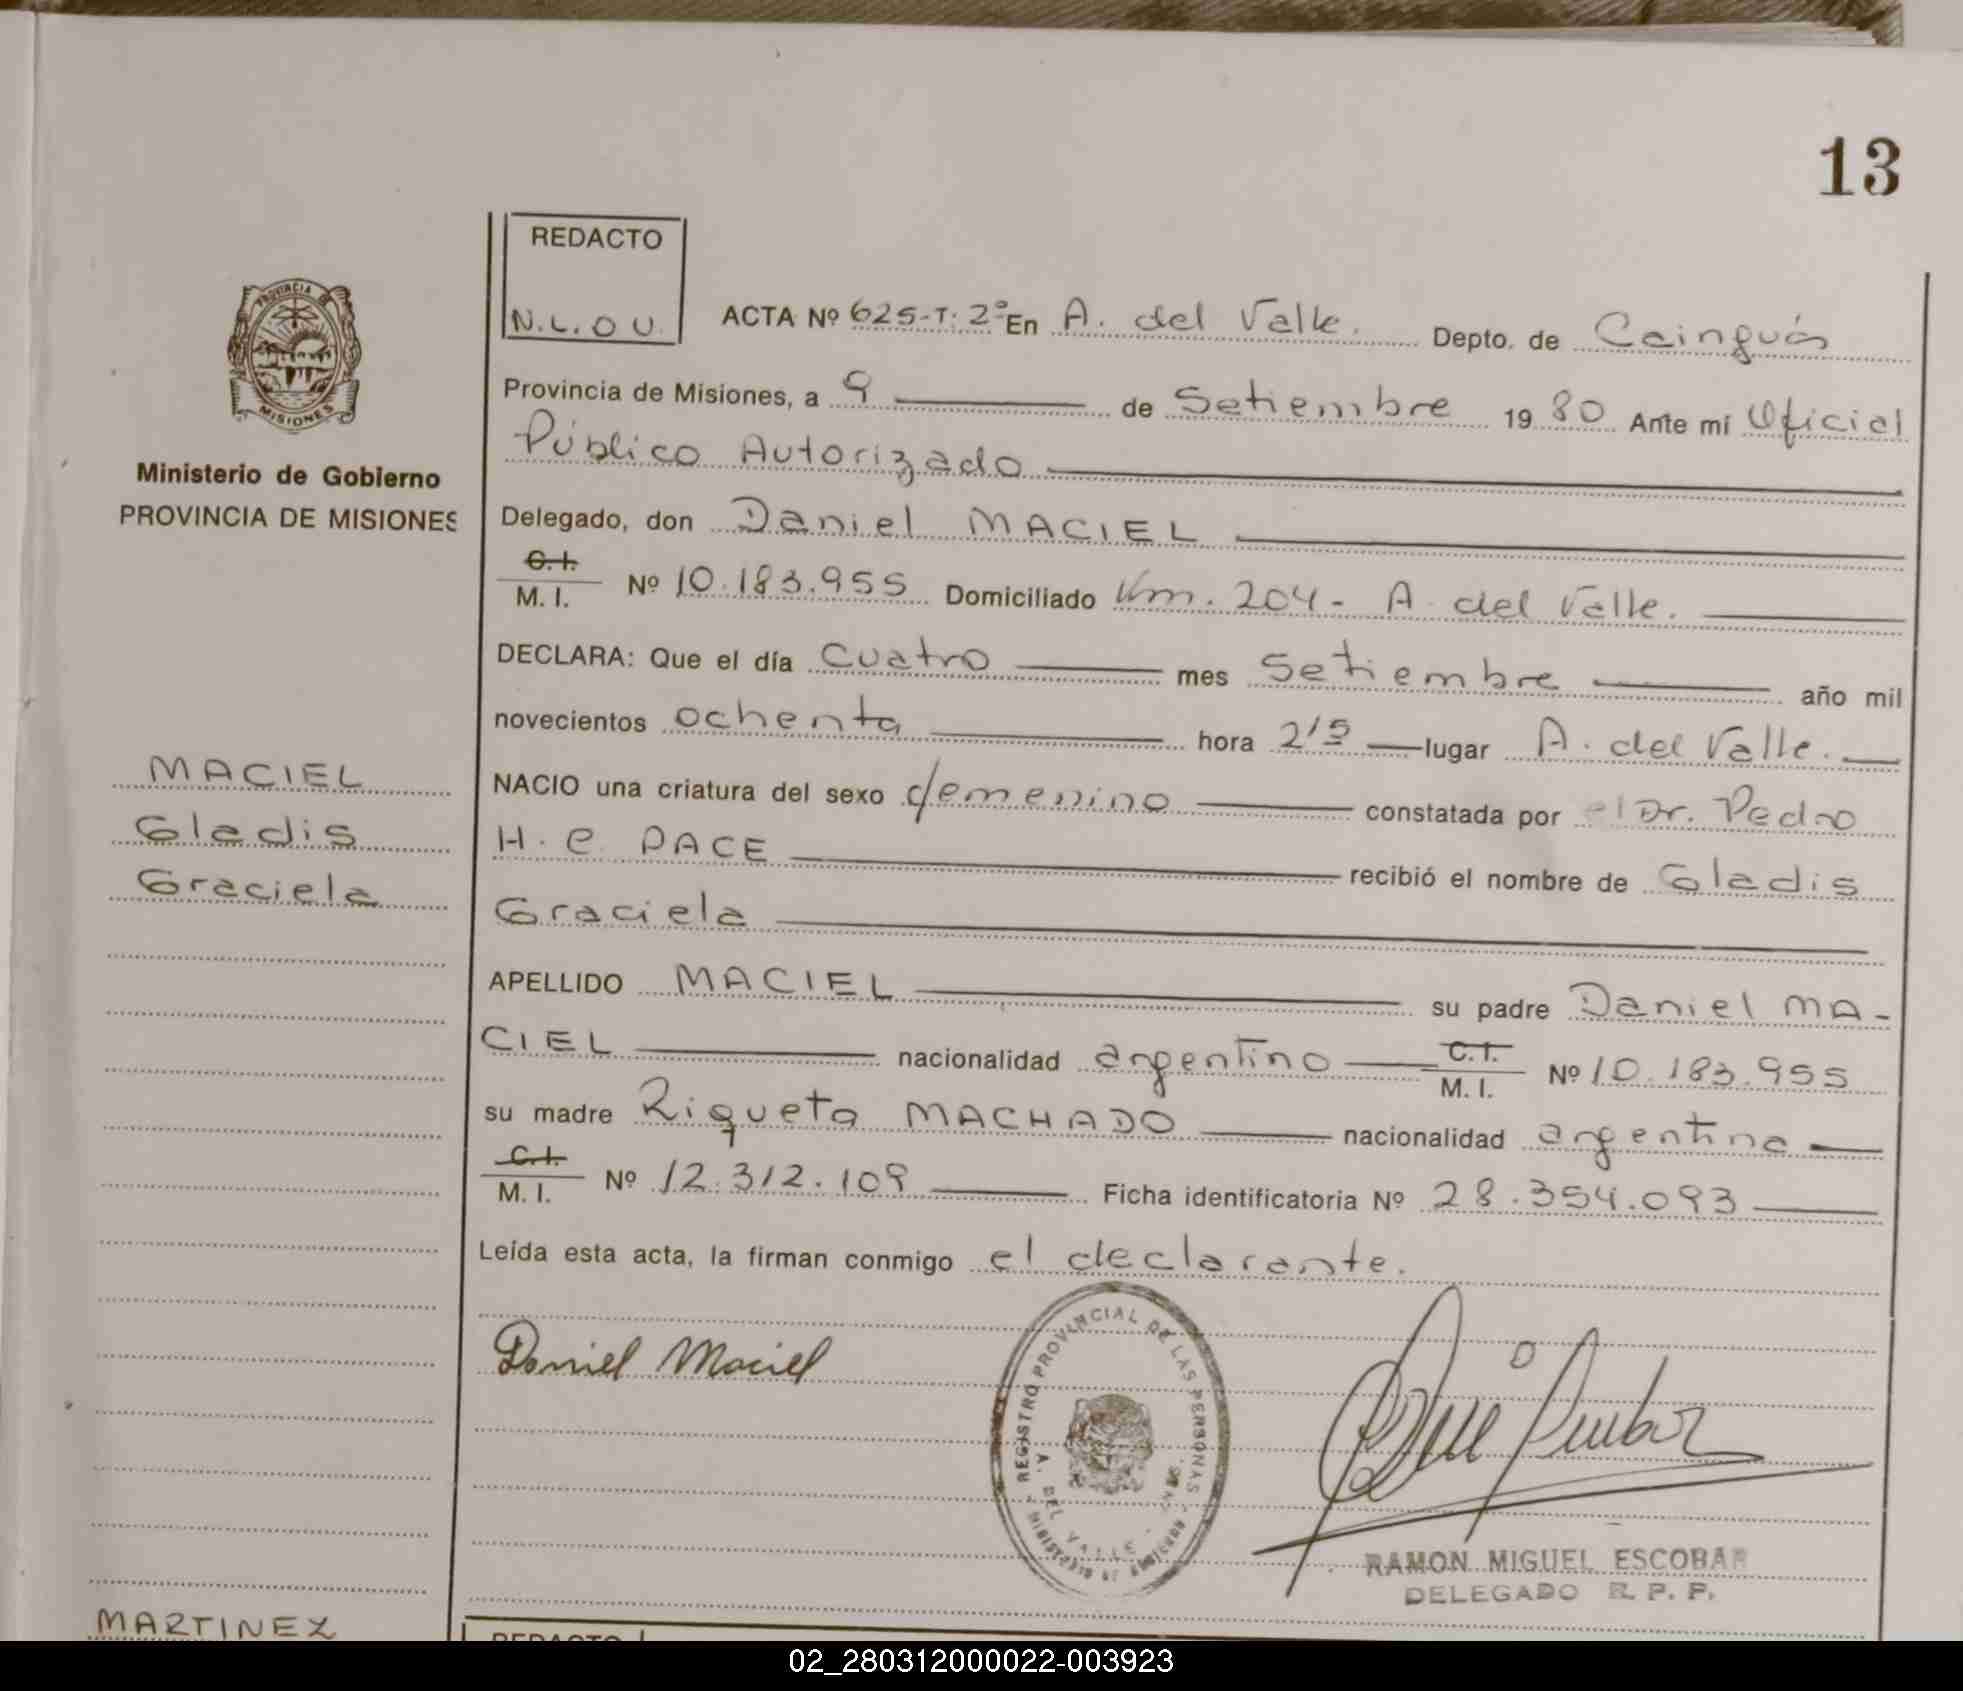 13
REDACTO
N.L.O U.
PROVINCIA DE
MISIONES
ACTA Nº 625-T: 2º En A. del Valle. Depto. de Cainguás
Provincia de Misiones, a 9 de Setiembre 19 80 Ante mi Oficial
Público Autorizado
Ministerio de Gobierno
PROVINCIA DE MISIONES
Delegado, don Daniel MACIEL
C.I.
M. I. Nº 10.183.955 Domiciliado Km. 204- A. del Valle.
DECLARA: Que el día cuatro mes Setiembre año mil
novecientos ochenta hora 2'5 lugar A. del Valle.
MACIEL
Gladis
Graciela
NACIO una criatura del sexo femenino constatada por el Dr. Pedro
H. C. PACE recibió el nombre de Gladis
Graciela
APELLIDO MACIEL su padre Daniel MA-
CIEL nacionalidad argentino C.I. M. I. Nº 10.183.955
su madre Riqueta MACHADO nacionalidad argentina
C.I.
M. I. Nº 12.312.109 Ficha identificatoria Nº 28.354.093
Leída esta acta, la firman conmigo el declarante.
Daniel Maciel
REGISTRO PROVINCIAL DE LAS PERSONAS
A. DEL VALLE
RAMON MIGUEL ESCOBAR
DELEGADO R. P. P.
MARTINEZ
REDACTO
02_280312000022-003923